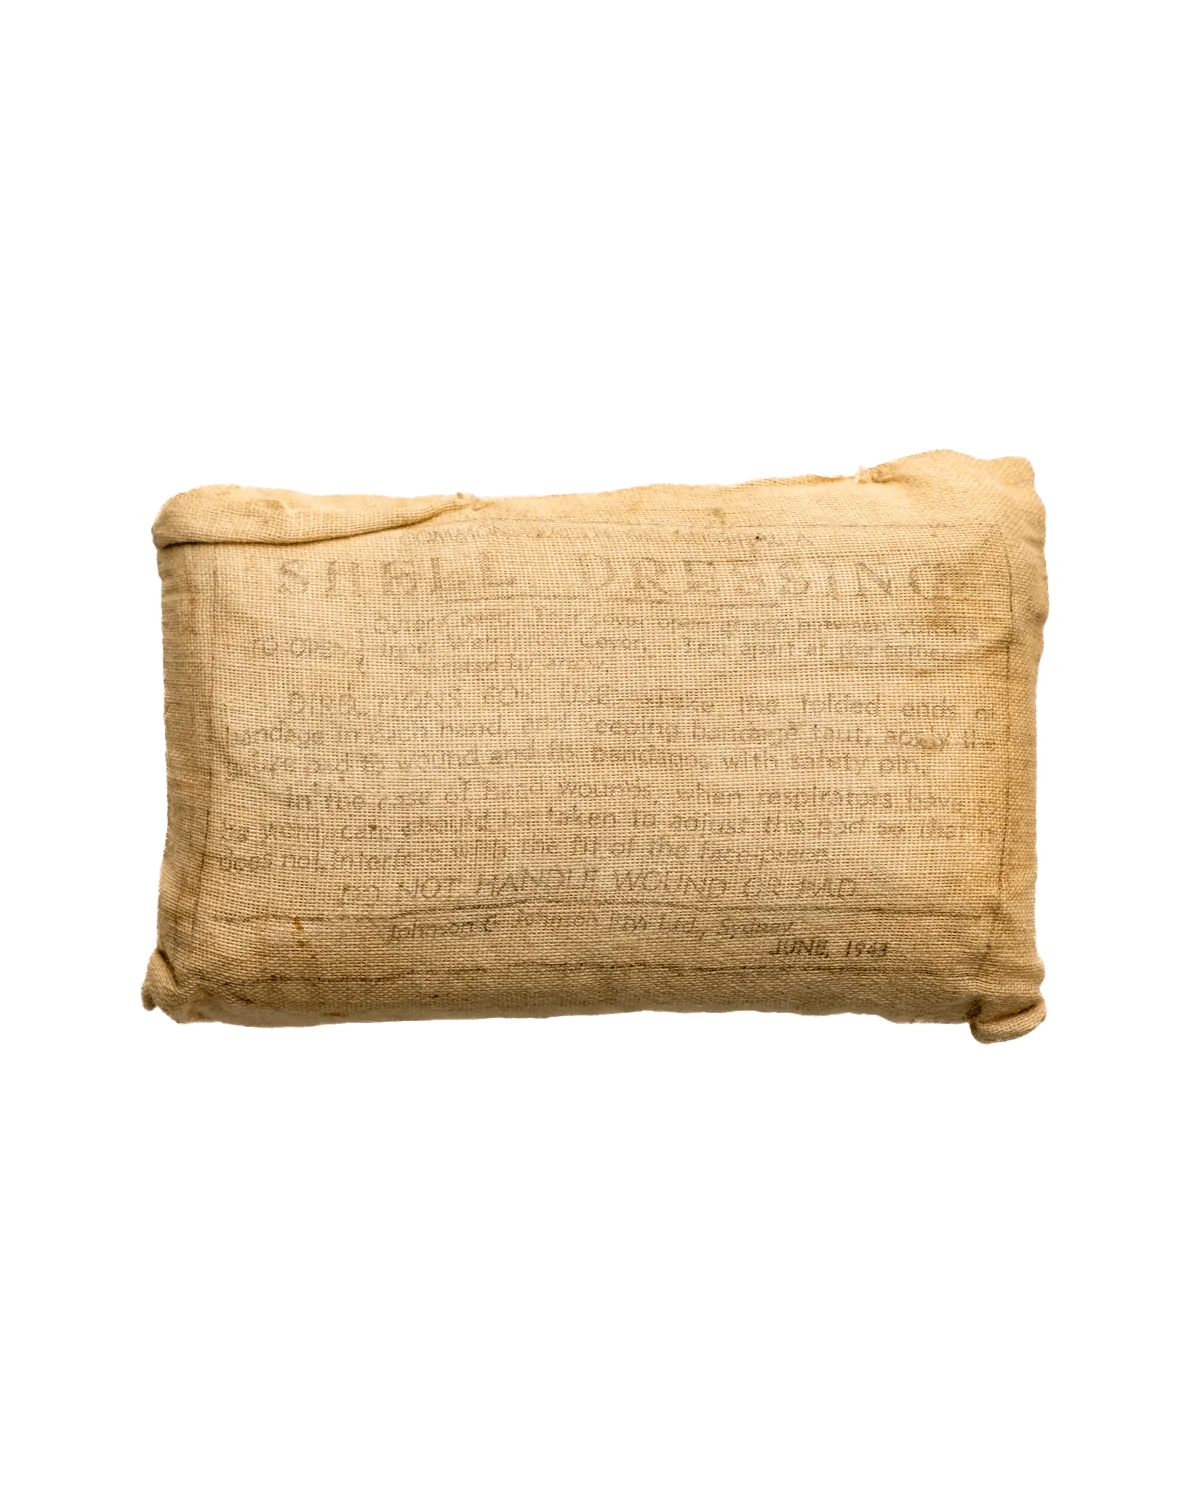 SHELL DRESSING
TO OPEN Outer Cover. Tear cover
Inner Waterproof Cover. Tear apart at the corner
indicated by arrow.
DIRECTIONS FOR USE. Take the folded ends of
bandage in each hand, and keeping bandage taut, apply the
gauze pad to wound and fix bandage with safety pin.
In the case of head wounds, when respirators have to
be worn, care should be taken to adjust the pad so that it
does not interfere with the fit of the face-piece.
DO NOT HANDLE WOUND OR PAD
Johnson & Johnson Pty. Ltd., Sydney
JUNE, 1943